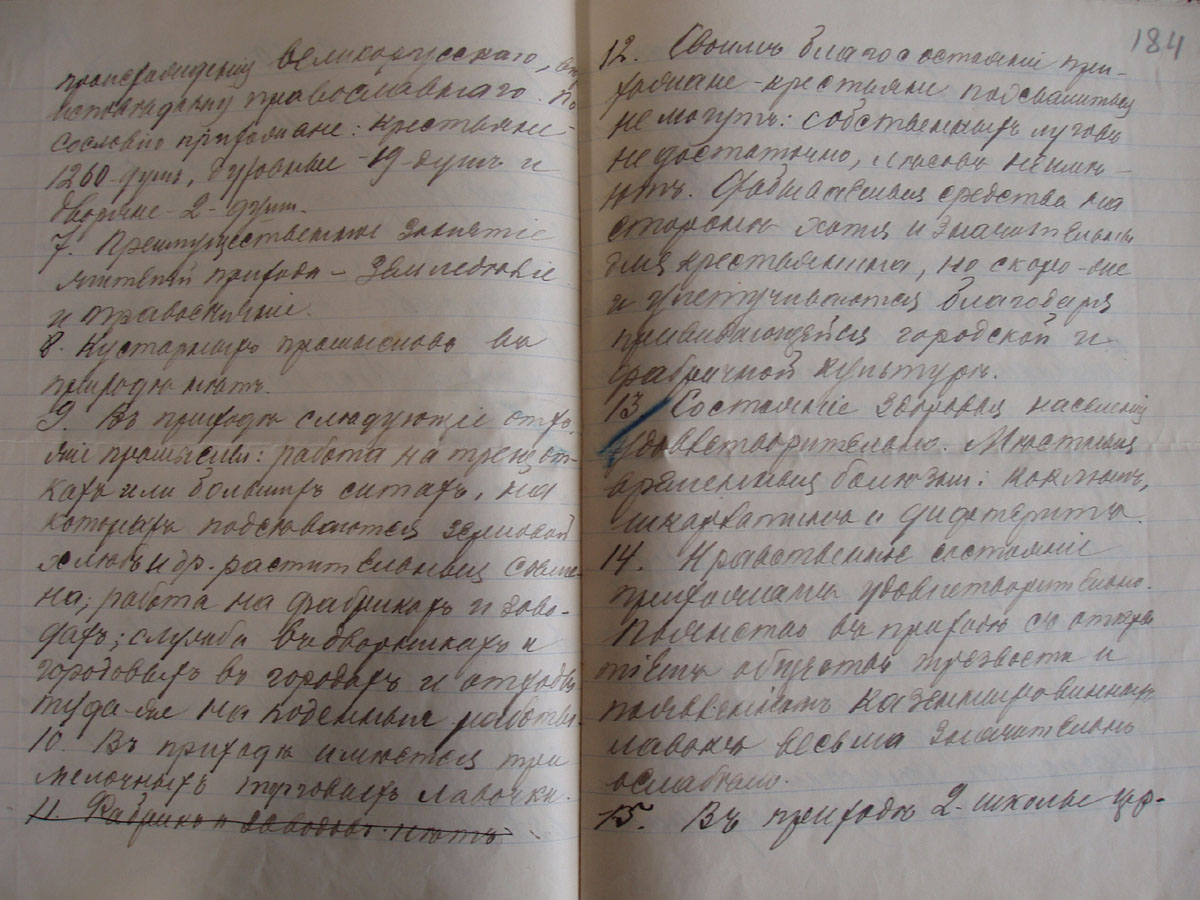 происхожденiя великорусскаго, вѣро-
исповѣданiя православнаго. По
сословiю прихожане: крестьяне-
1260-душъ, духовные -19 душъ и
дворяне-2-души.
7. Преимущественное занятiе
жителей прихода - земледѣлiе
и травосѣянiе.
8. Кустарныхъ промысловъ въ
приходѣ нѣтъ.
9. Въ приходѣ слѣдующiе отхо-
жiе промыслы: работа на трещот-
кахъ или большихъ ситахъ, на
которыхъ подсѣваются зерновой
хлѣбъ и др. растительныя сѣме-
на; работа на фабрикахъ и заво-
дахъ; служба въ дворникахъ и
городовыхъ въ городахъ и отходъ
туда-же на поденныя работы.
10. Въ приходѣ имѣется три
мелочныхъ торговыхъ лавочки.
11. Фабрикъ и заводовъ нѣтъ
184
12. Своимъ благосостоянiемъ при-
хожане-крестьяне похвалиться
не могутъ: собственныхъ луговъ
недостаточно, лѣсовъ не имѣ-
ютъ. Добываемыя средства на
сторонѣ хотя и значительны
для крестьянина, но скоро-же
и улетучиваются благодаря
прививающейся городской и
фабричной культурѣ.
13. Состоянiе здоровья населенiя
удовлетворительно. Мѣстныя
временныя болѣзни: коклюшъ,
шкарлатина и дифтеритъ.
14. Нравственное состоянiе
прихожанъ удовлетворительно.
Пьянство въ приходѣ съ откры-
тiемъ общества трезвости и
появленiемъ казенныхъ винныхъ
лавокъ весьма значительно
ослабѣло.
15. Въ приходѣ 2-школы цр-